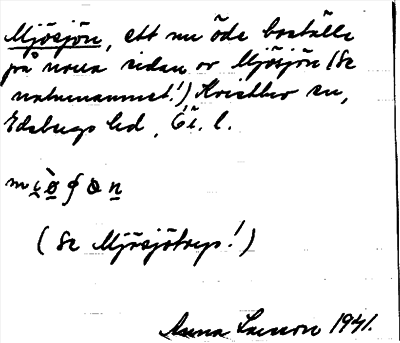 Mjösjön, ett nu öde boställe
på norra sidan av Mjösjön (Se
naturnamnet!) Kvistbro sn,
Edsbergs hd, Ö. l.
(Se Mjösjötorp!)
Anna Larsson 1941.